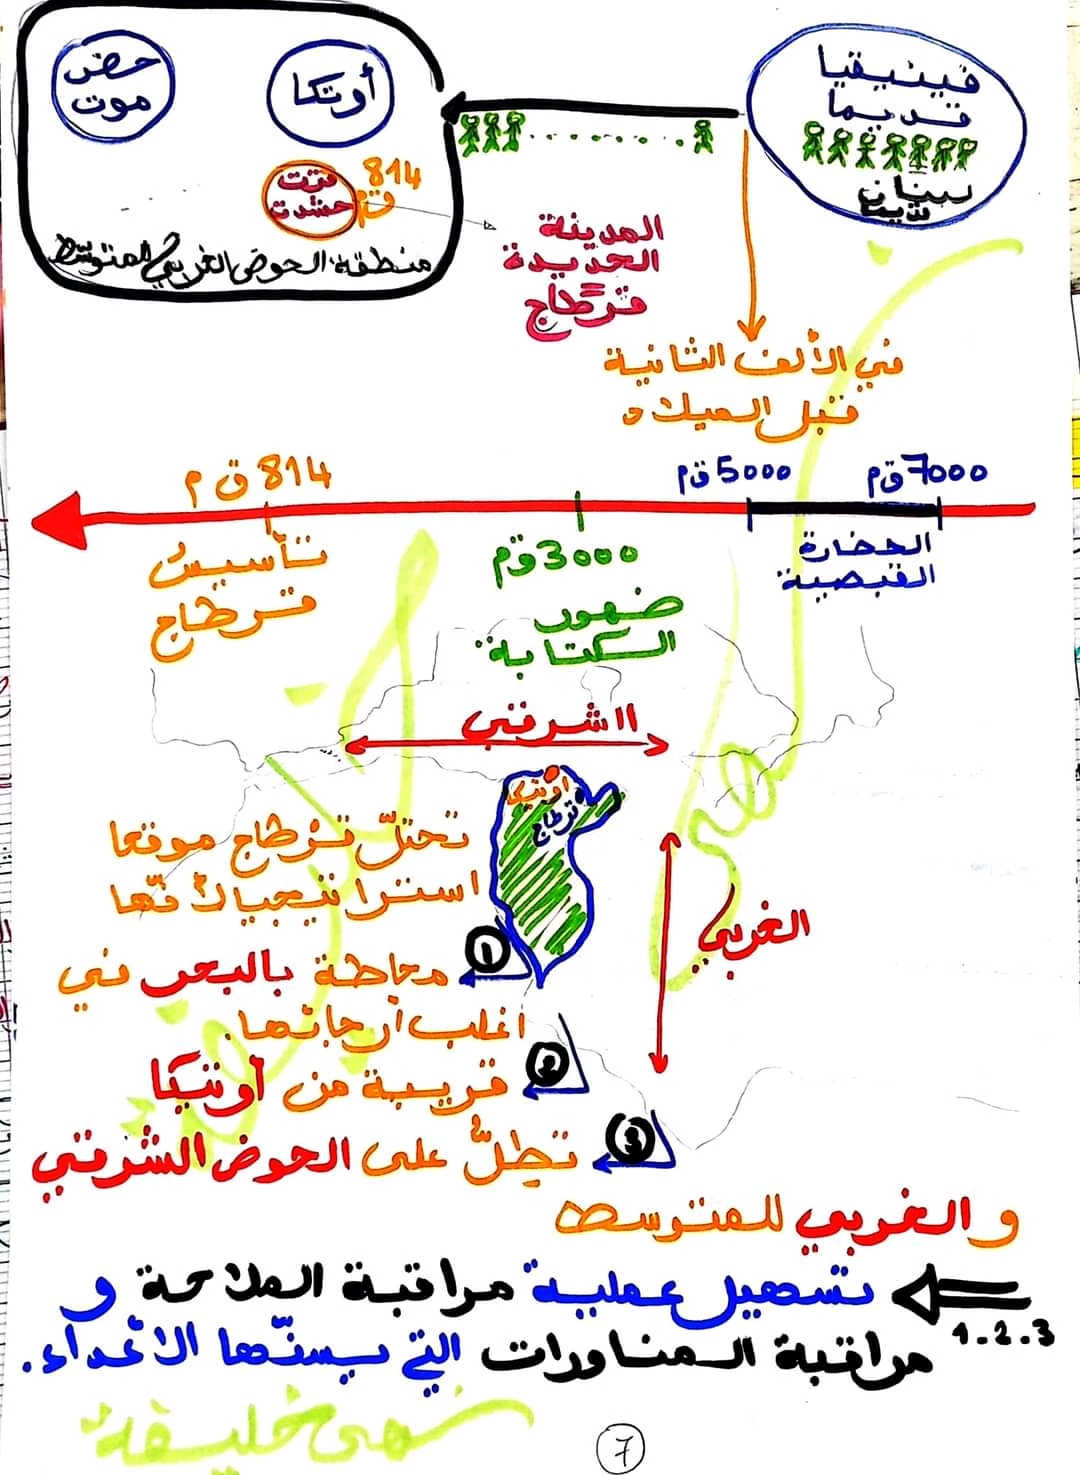 فينيقيا
قديما
لبنان
قديما
حضر
موت
أوتكا
قرت
حشدت
814
ق م
منطقة الحوض الغربي للمتوسط
المدينة
الجديدة
=
قرطاج
في الألف الثانية
قبل الميلاد
7000 ق م
5000 ق م
814 ق م
الحضارة
القبصية
3000 ق م
ضهور
الكتابة
تأسيس
قرطاج
الشرقي
أوتيكا
قرطاج
الغربي
تحتلّ قرطاج موقعا
استراتيجيا لأنّها
1 محاطة بالبحر في
أغلب أرجائها.
2 قريبة من أوتيكا
3 تطلّ على الحوض الشرقي
و الغربي للمتوسط
1.2.3 تسهيل عملية مراقبة الملاحة و
مراقبة المناورات التي يسنّها الأعداء.
نهى خليفة
7